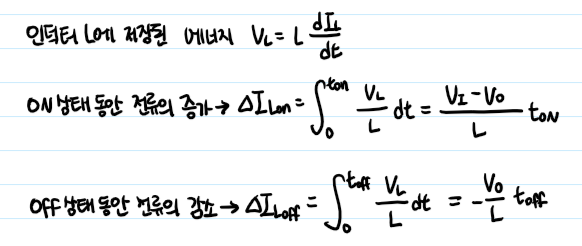 인덕터 L에 저장된 에너지 V_L = L dI_L/dt
ON 상태 동안 전류의 증가 → ΔI_Lon = ∫_0^ton V_L/L dt = (V_I - V_O)/L t_ON
OFF 상태 동안 전류의 감소 → ΔI_Loff = ∫_0^toff V_L/L dt = - V_O/L t_off